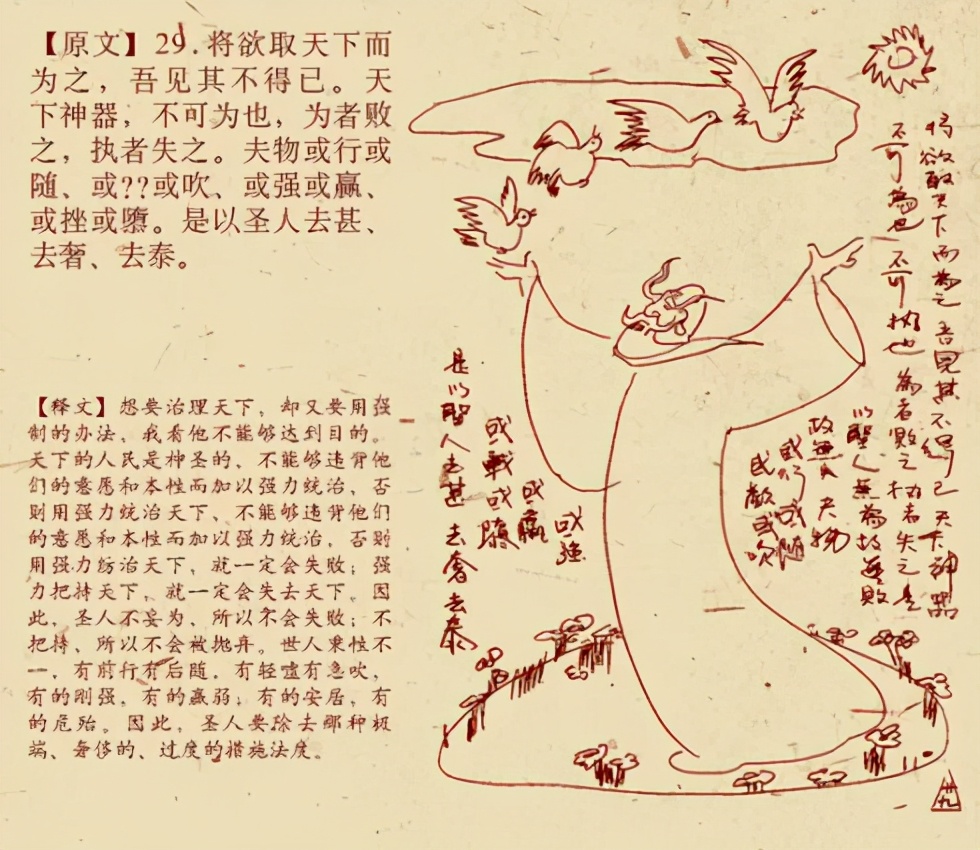 【原文】29.将欲取天下而
为之，吾见其不得已。天
下神器，不可为也，为者败
之，执者失之。夫物或行或
随、或??或吹、或强或羸、
或挫或隳。是以圣人去甚、
去奢、去泰。
【释文】想要治理天下，却又要用强
制的办法，我看他不能够达到目的。
天下的人民是神圣的，不能够违背他
们的意愿和本性而加以强力统治，否
则用强力统治天下、不能够违背他们
的意愿和本性而加以强力统治，否则
用强力纺治天下，就一定会失败；强
力把持天下，就一定会失去天下。因
此，圣人不妄为，所以不会失败；不
把持、所以不会被抛弃。世人秉性不
一，有前行有后随，有轻嘘有急吹，
有的刚强，有的羸弱；有的安居，有
的危殆。因此，圣人要除去那种极
端、奢侈的、过度的措施法度。
将欲取天下而為之 吾見其不得已 天下神器
不可為也 不可執也 為者敗之 执者失之 是
以聖人無為故無敗
故無失 夫物
或行或隨
或歔或吹
或強
或羸
或載或隳
是以聖人去甚 去奢 去泰
卅九